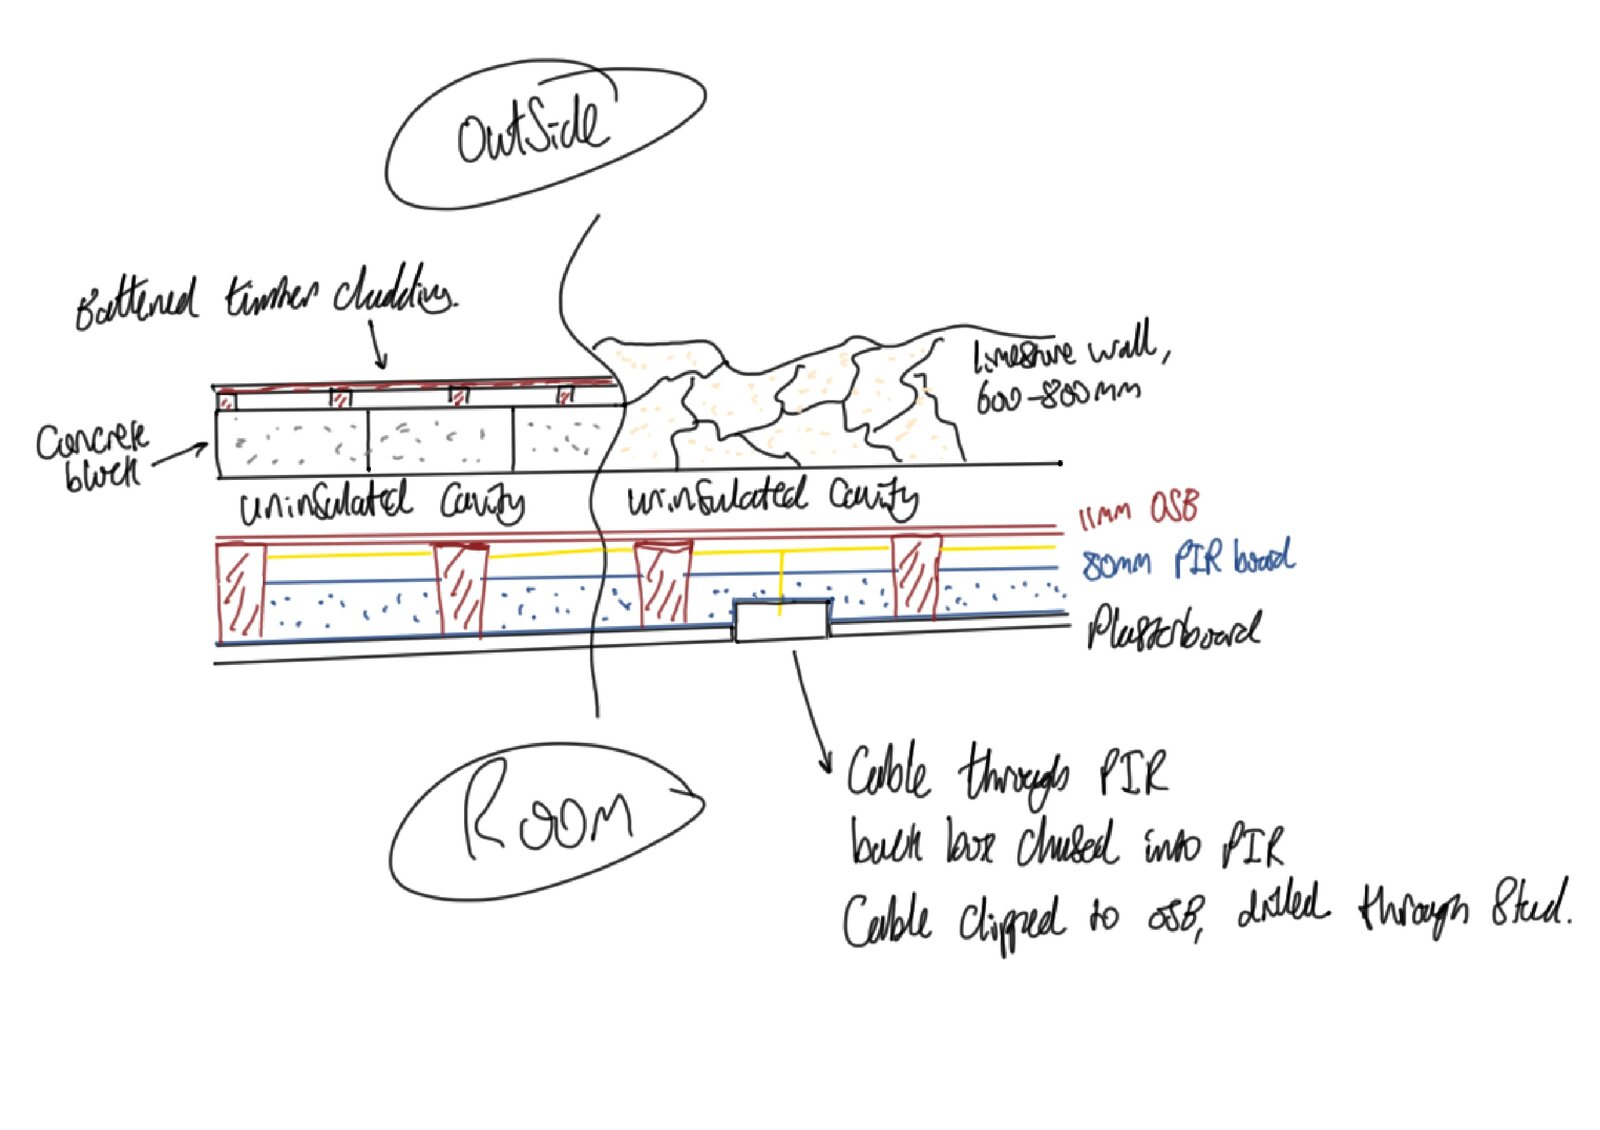 Outside
Battened timber cladding.
Limestone wall,
600-800mm
Concrete
block
uninsulated cavity
uninsulated cavity
11mm OSB
80mm PIR board
Plasterboard
Room
Cable through PIR
back box chased into PIR
Cable clipped to OSB, drilled through Stud.